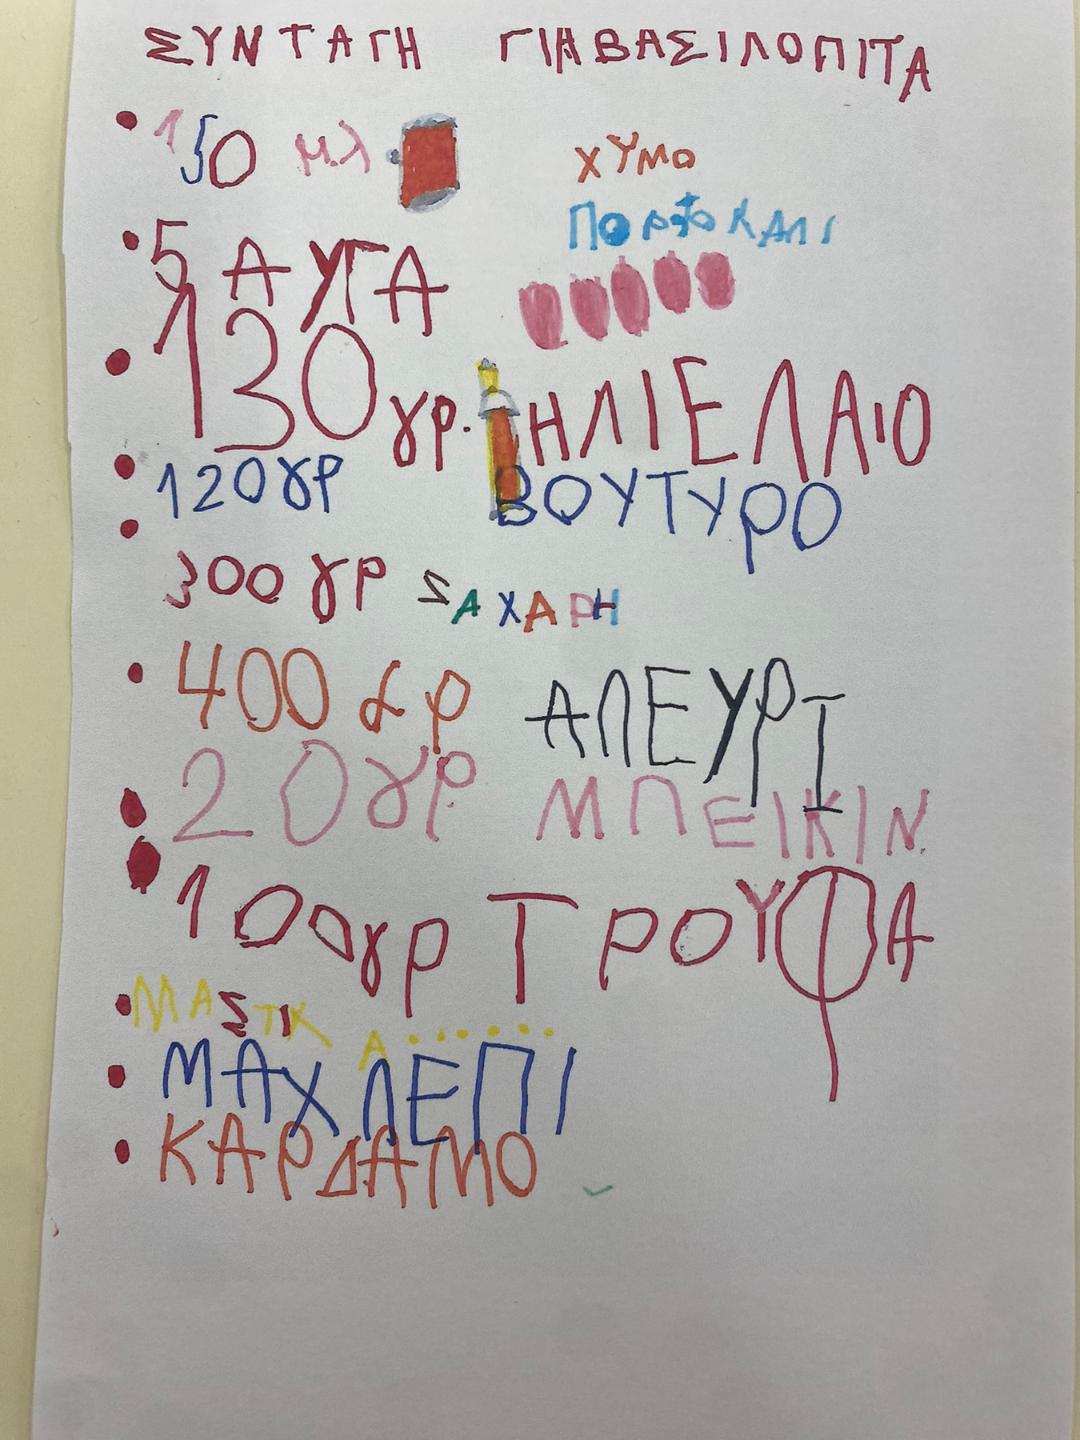 ΣΥΝΤΑΓΗ ΓΙΑ ΒΑΣΙΛΟΠΙΤΑ
150 μλ ΧΥΜΟ
ΠΟΡΤΟΚΑΛΙ
5 ΑΥΓΑ
130 γρ. ΗΛΙΕΛΑΙΟ
120 γρ ΒΟΥΤΥΡΟ
300 γρ ΖΑΧΑΡΗ
400 γρ ΑΛΕΥΡΙ
20 γρ ΜΠΕΙΚΙΝ
100 γρ ΤΡΟΥΦΑ
ΜΑΣΤΙΚΑ.......
ΜΑΧΛΕΠΙ
ΚΑΡΔΑΜΟ